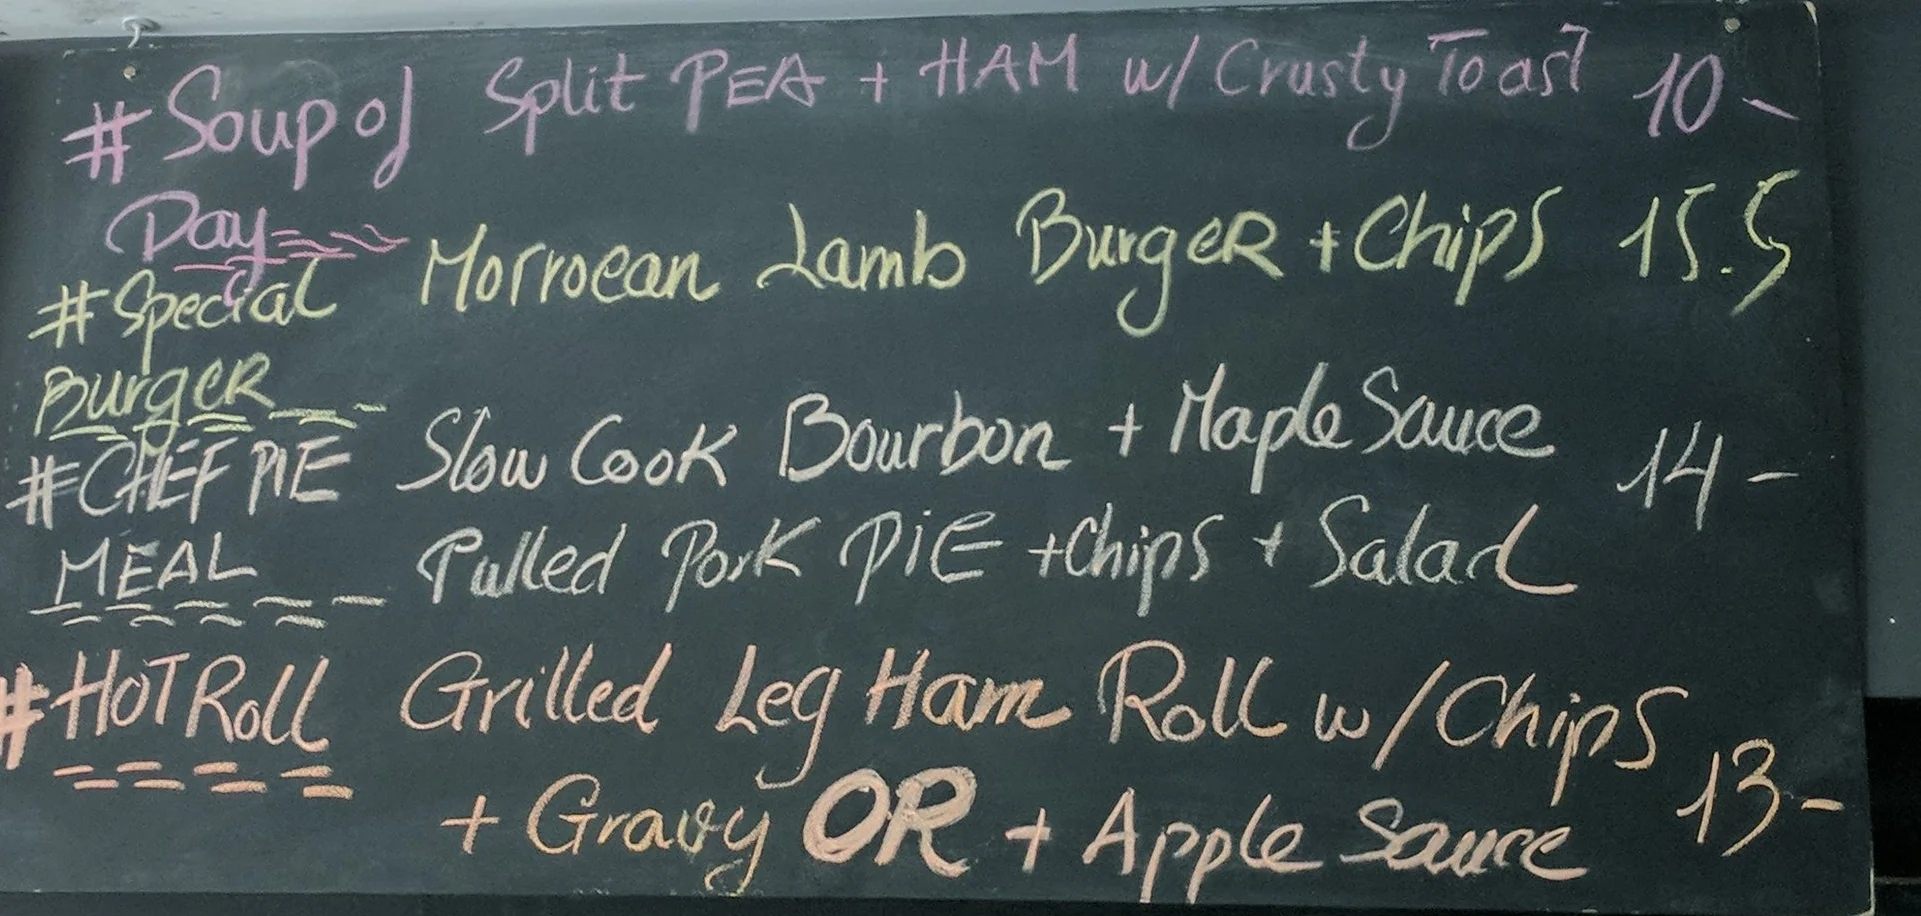 #Soup of Split PEA + HAM w/ Crusty Toast 10-
Day
#Special Morrocan Lamb Burger + Chips 15.5
Burger
#CHEF PIE Slow Cook Bourbon + Maple Sauce 14-
MEAL Pulled Pork PiE +Chips + Salad
#HOT Roll Grilled Leg Ham Roll w/Chips
+ Gravy OR + Apple Sauce 13-